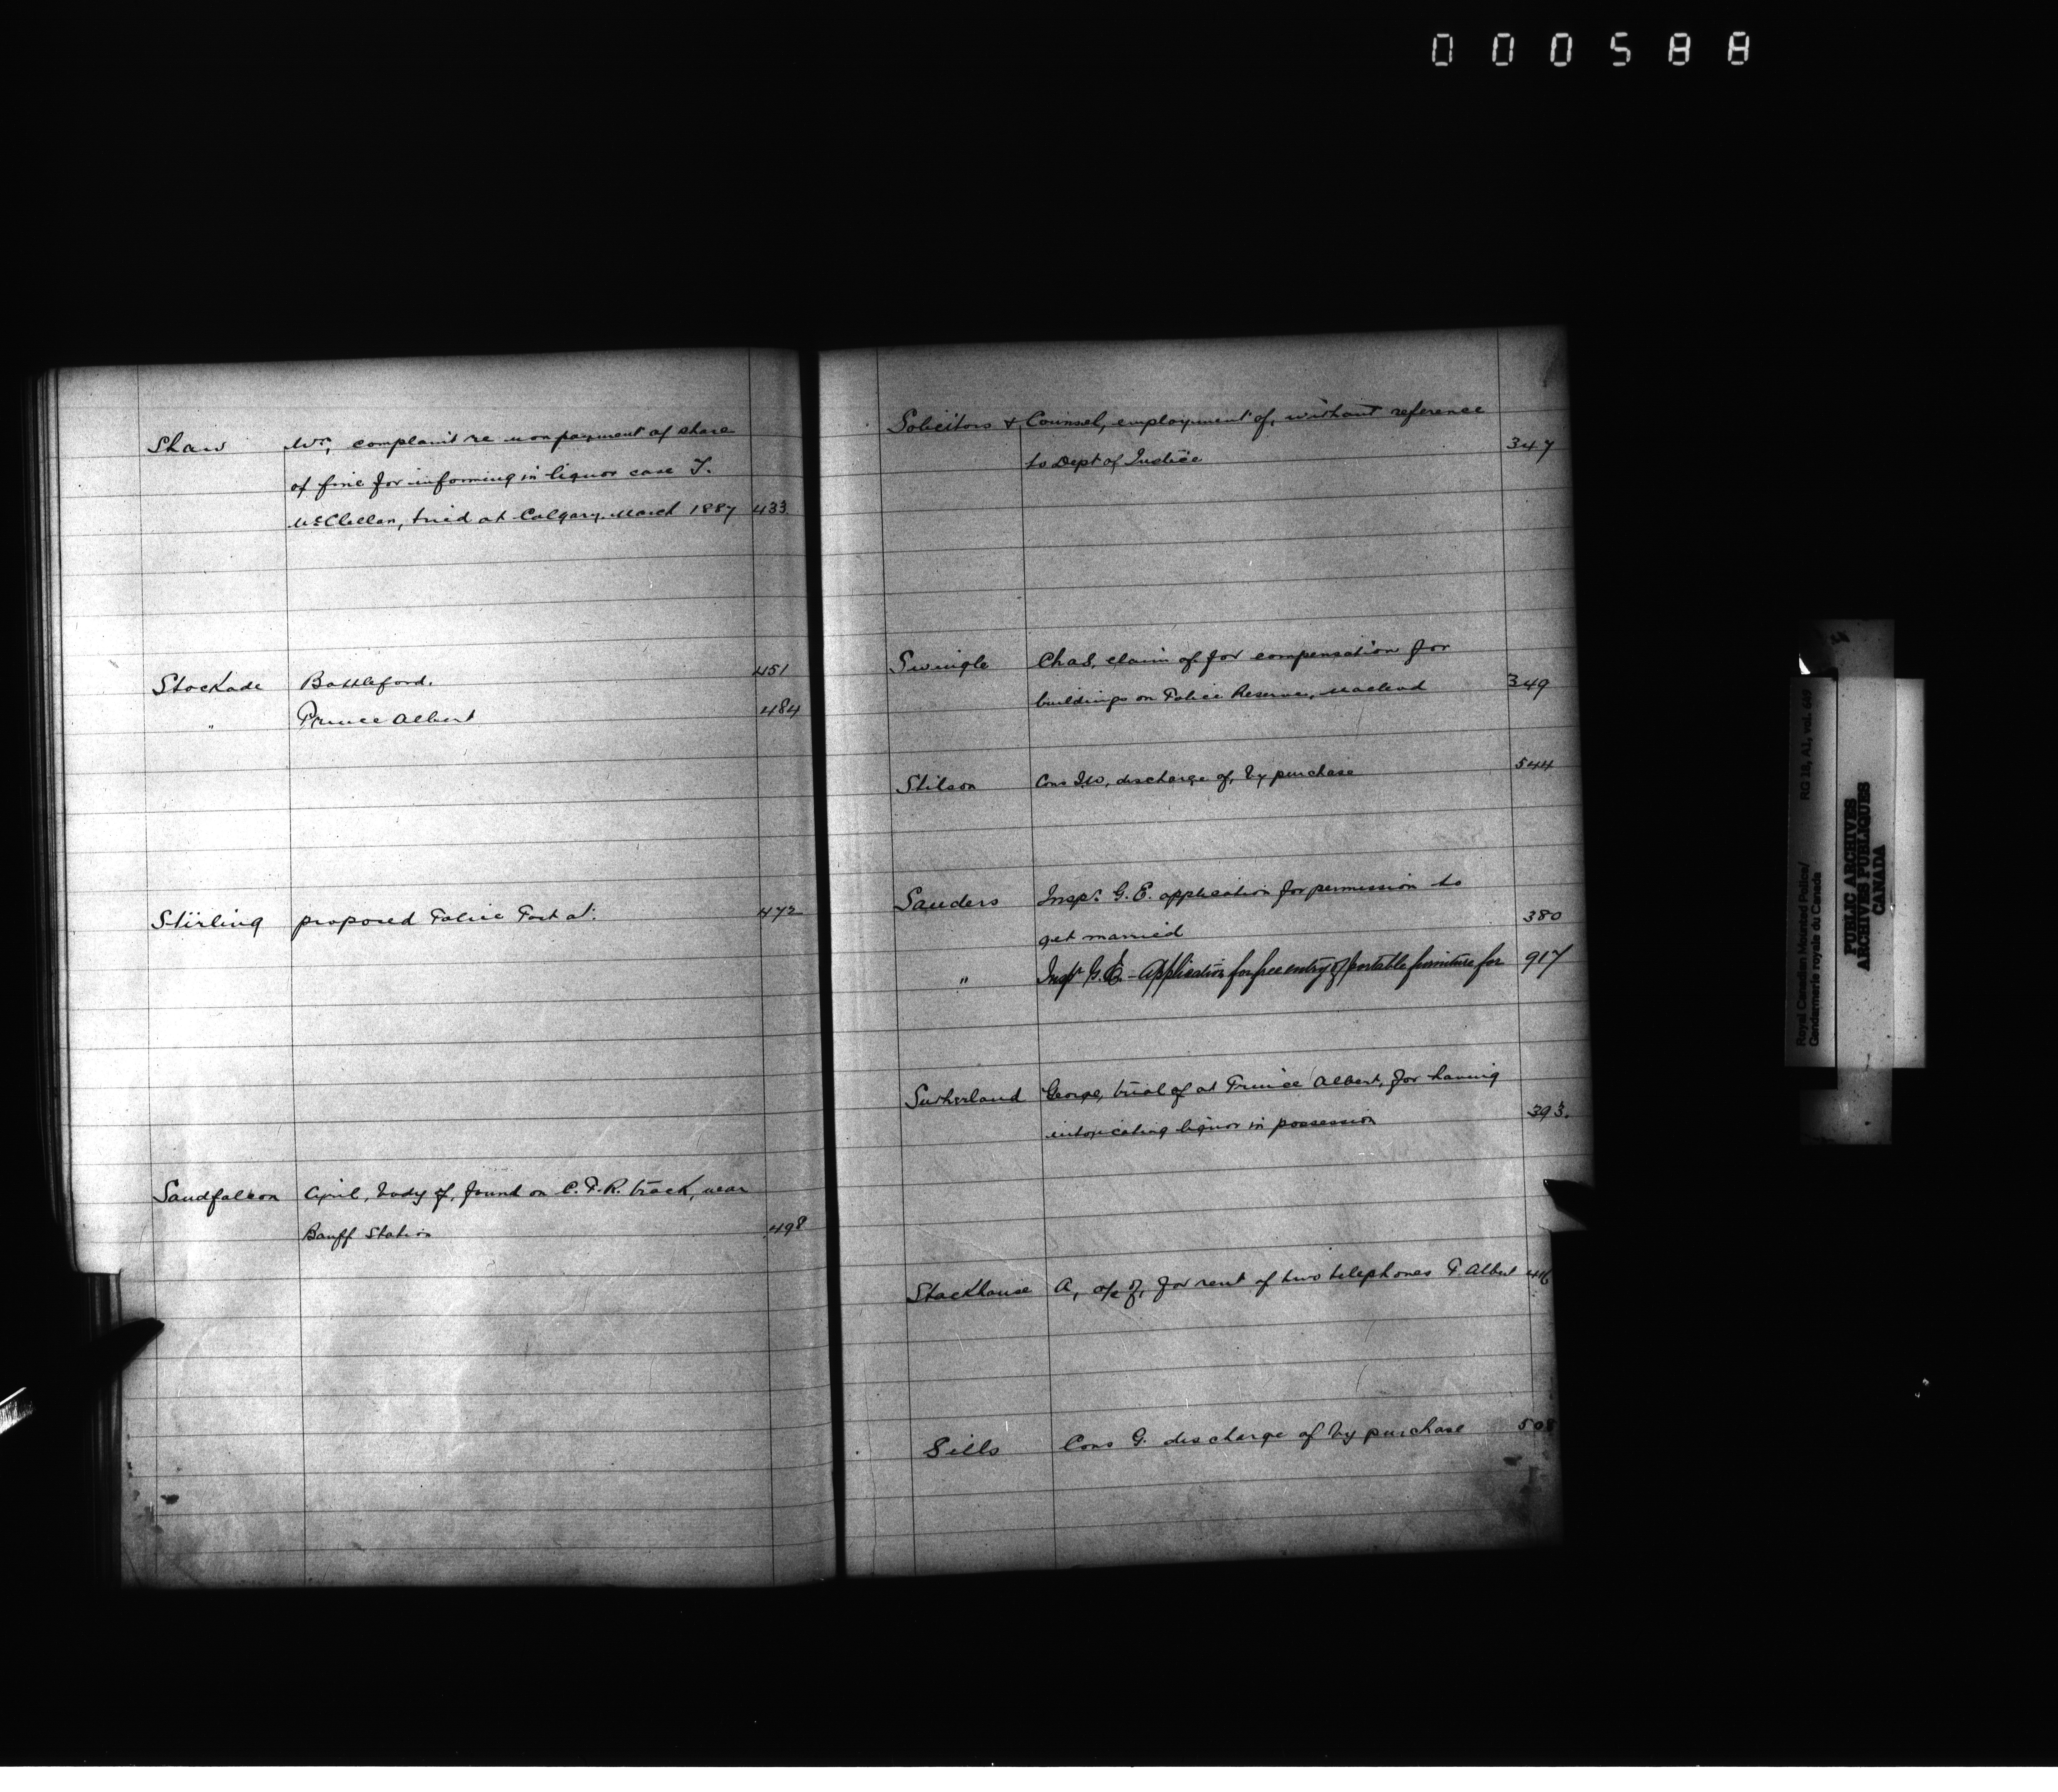 000588
Shaw Wm, complaint re non payment of share
of fine for informing in liquor case J.
McClellan, tried at Calgary, March 1887 433
Stockade Battleford. 451
" Prince Albert 484
Stirling proposed Police Post at. 472
Sandfalcon April, body of, found on C.P.R. track, near
Banff Station 498
Solicitors & Counsel, employment of, without reference
to Dept of Justice 347
Swingle Chas, claim of for compensation for
buildings on Police Reserve, Macleod 349
Stilson Cons J.W, discharge of, by purchase 544
Sanders Inspr. G.E. application for permission to
get married 380
" Inspr G.E. - Application for free entry of portable furniture for 917
Sutherland George, trial of at Prince Albert, for having
intoxicating liquor in possession 393.
Stackhouse A, a/c of, for rent of two telephones P. Albert 416
Sills Cons G. discharge of by purchase 508
Royal Canadian Mounted Police/
Gendarmerie royale du Canada
RG 18, A1, vol. 669
PUBLIC ARCHIVES
ARCHIVES PUBLIQUES
CANADA